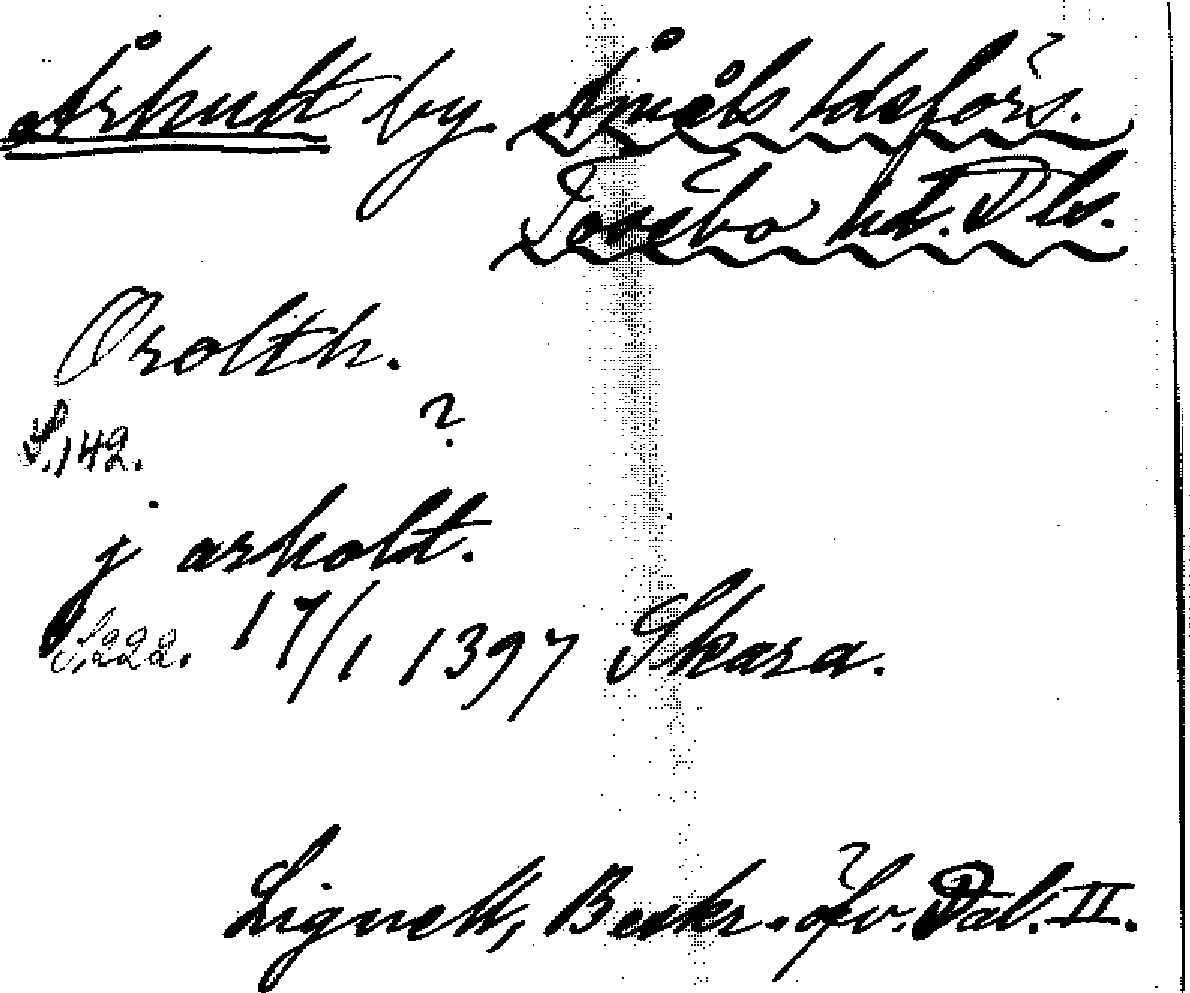 Århult by Åmåls ldsförs.
Tössbo hd. Dls.
Orolth.
S.142. ?
j arholt.
S.222. 17/1 1397 Skara.
Lignell, Beskr. öfv. Dal. II.